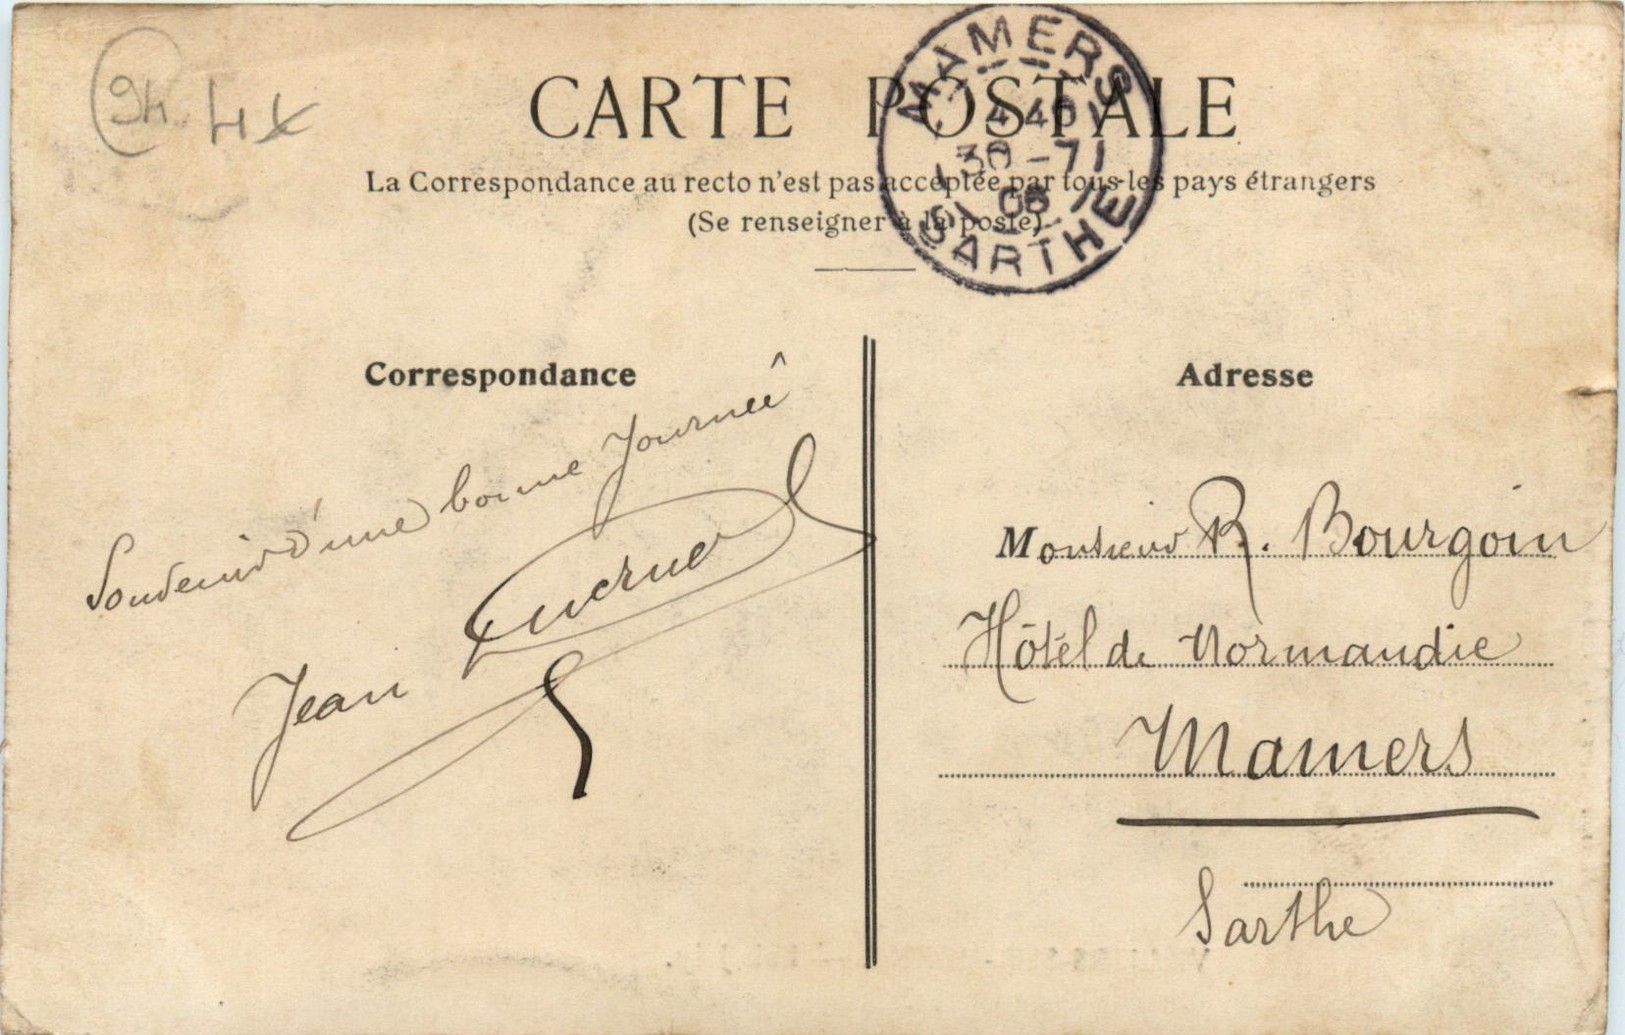 94 4x
CARTE POSTALE
La Correspondance au recto n'est pas acceptée par tous les pays étrangers
(Se renseigner à la poste)
MAMERS
30 -7
06
SARTHE
Correspondance
Souvenir d'une bonne Journeê
Jean
Adresse
Monsieur R. Bourgoin
Hôtél de Normandie
Mamers
Sarthe